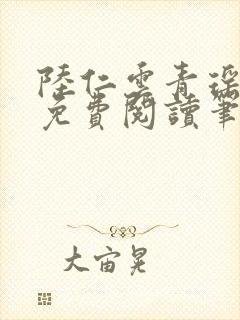 陸仁雲青瑤
免費閱讀筆
大宙晃